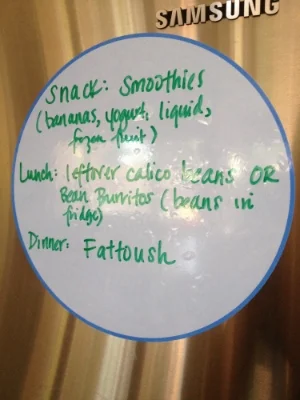 SAMSUNG
Snack: Smoothies
(bananas, yogurt, liquid,
frozen fruit)
Lunch: leftover calico beans OR
Bean Burritos (beans in
fridge)
Dinner: Fattoush